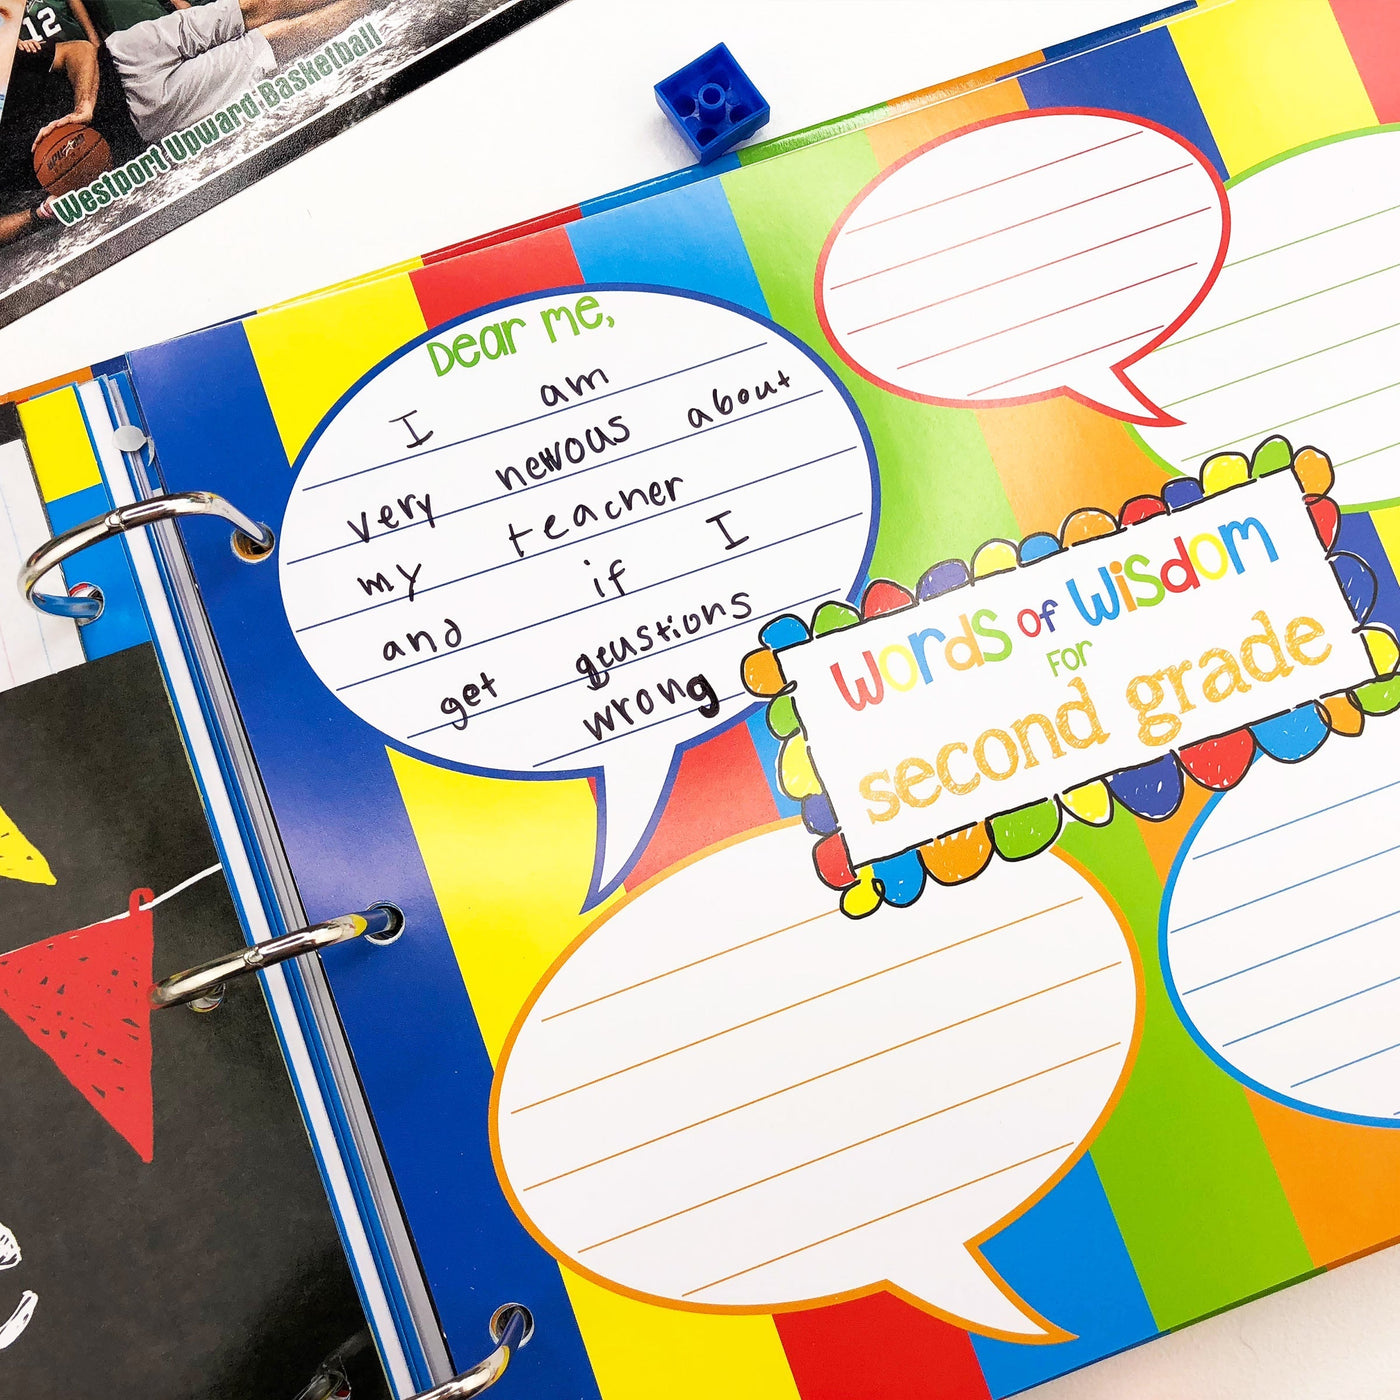 12
Westport Upward Basketball
Dear me,
I am
very nervous about
my teacher
and if I
get qeustions
wrong
Words of Wisdom
for
second grade